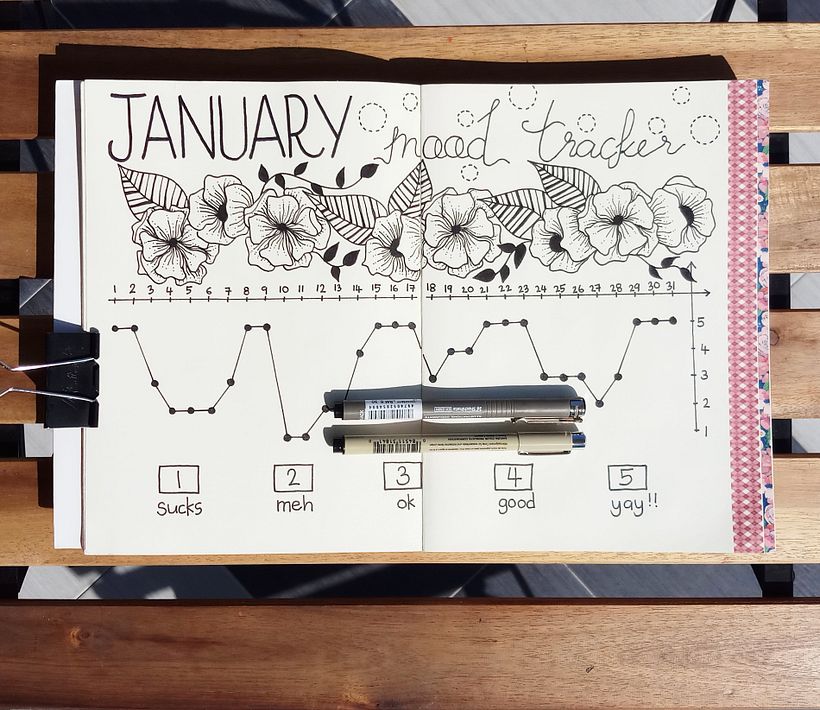 JANUARY mood tracker
1 2 3 4 5 6 7 8 9 10 11 12 13 14 15 16 17 18 19 20 21 22 23 24 25 26 27 28 29 30 31
5
4
3
2
1
1 2 3 4 5
sucks meh ok good yay!!